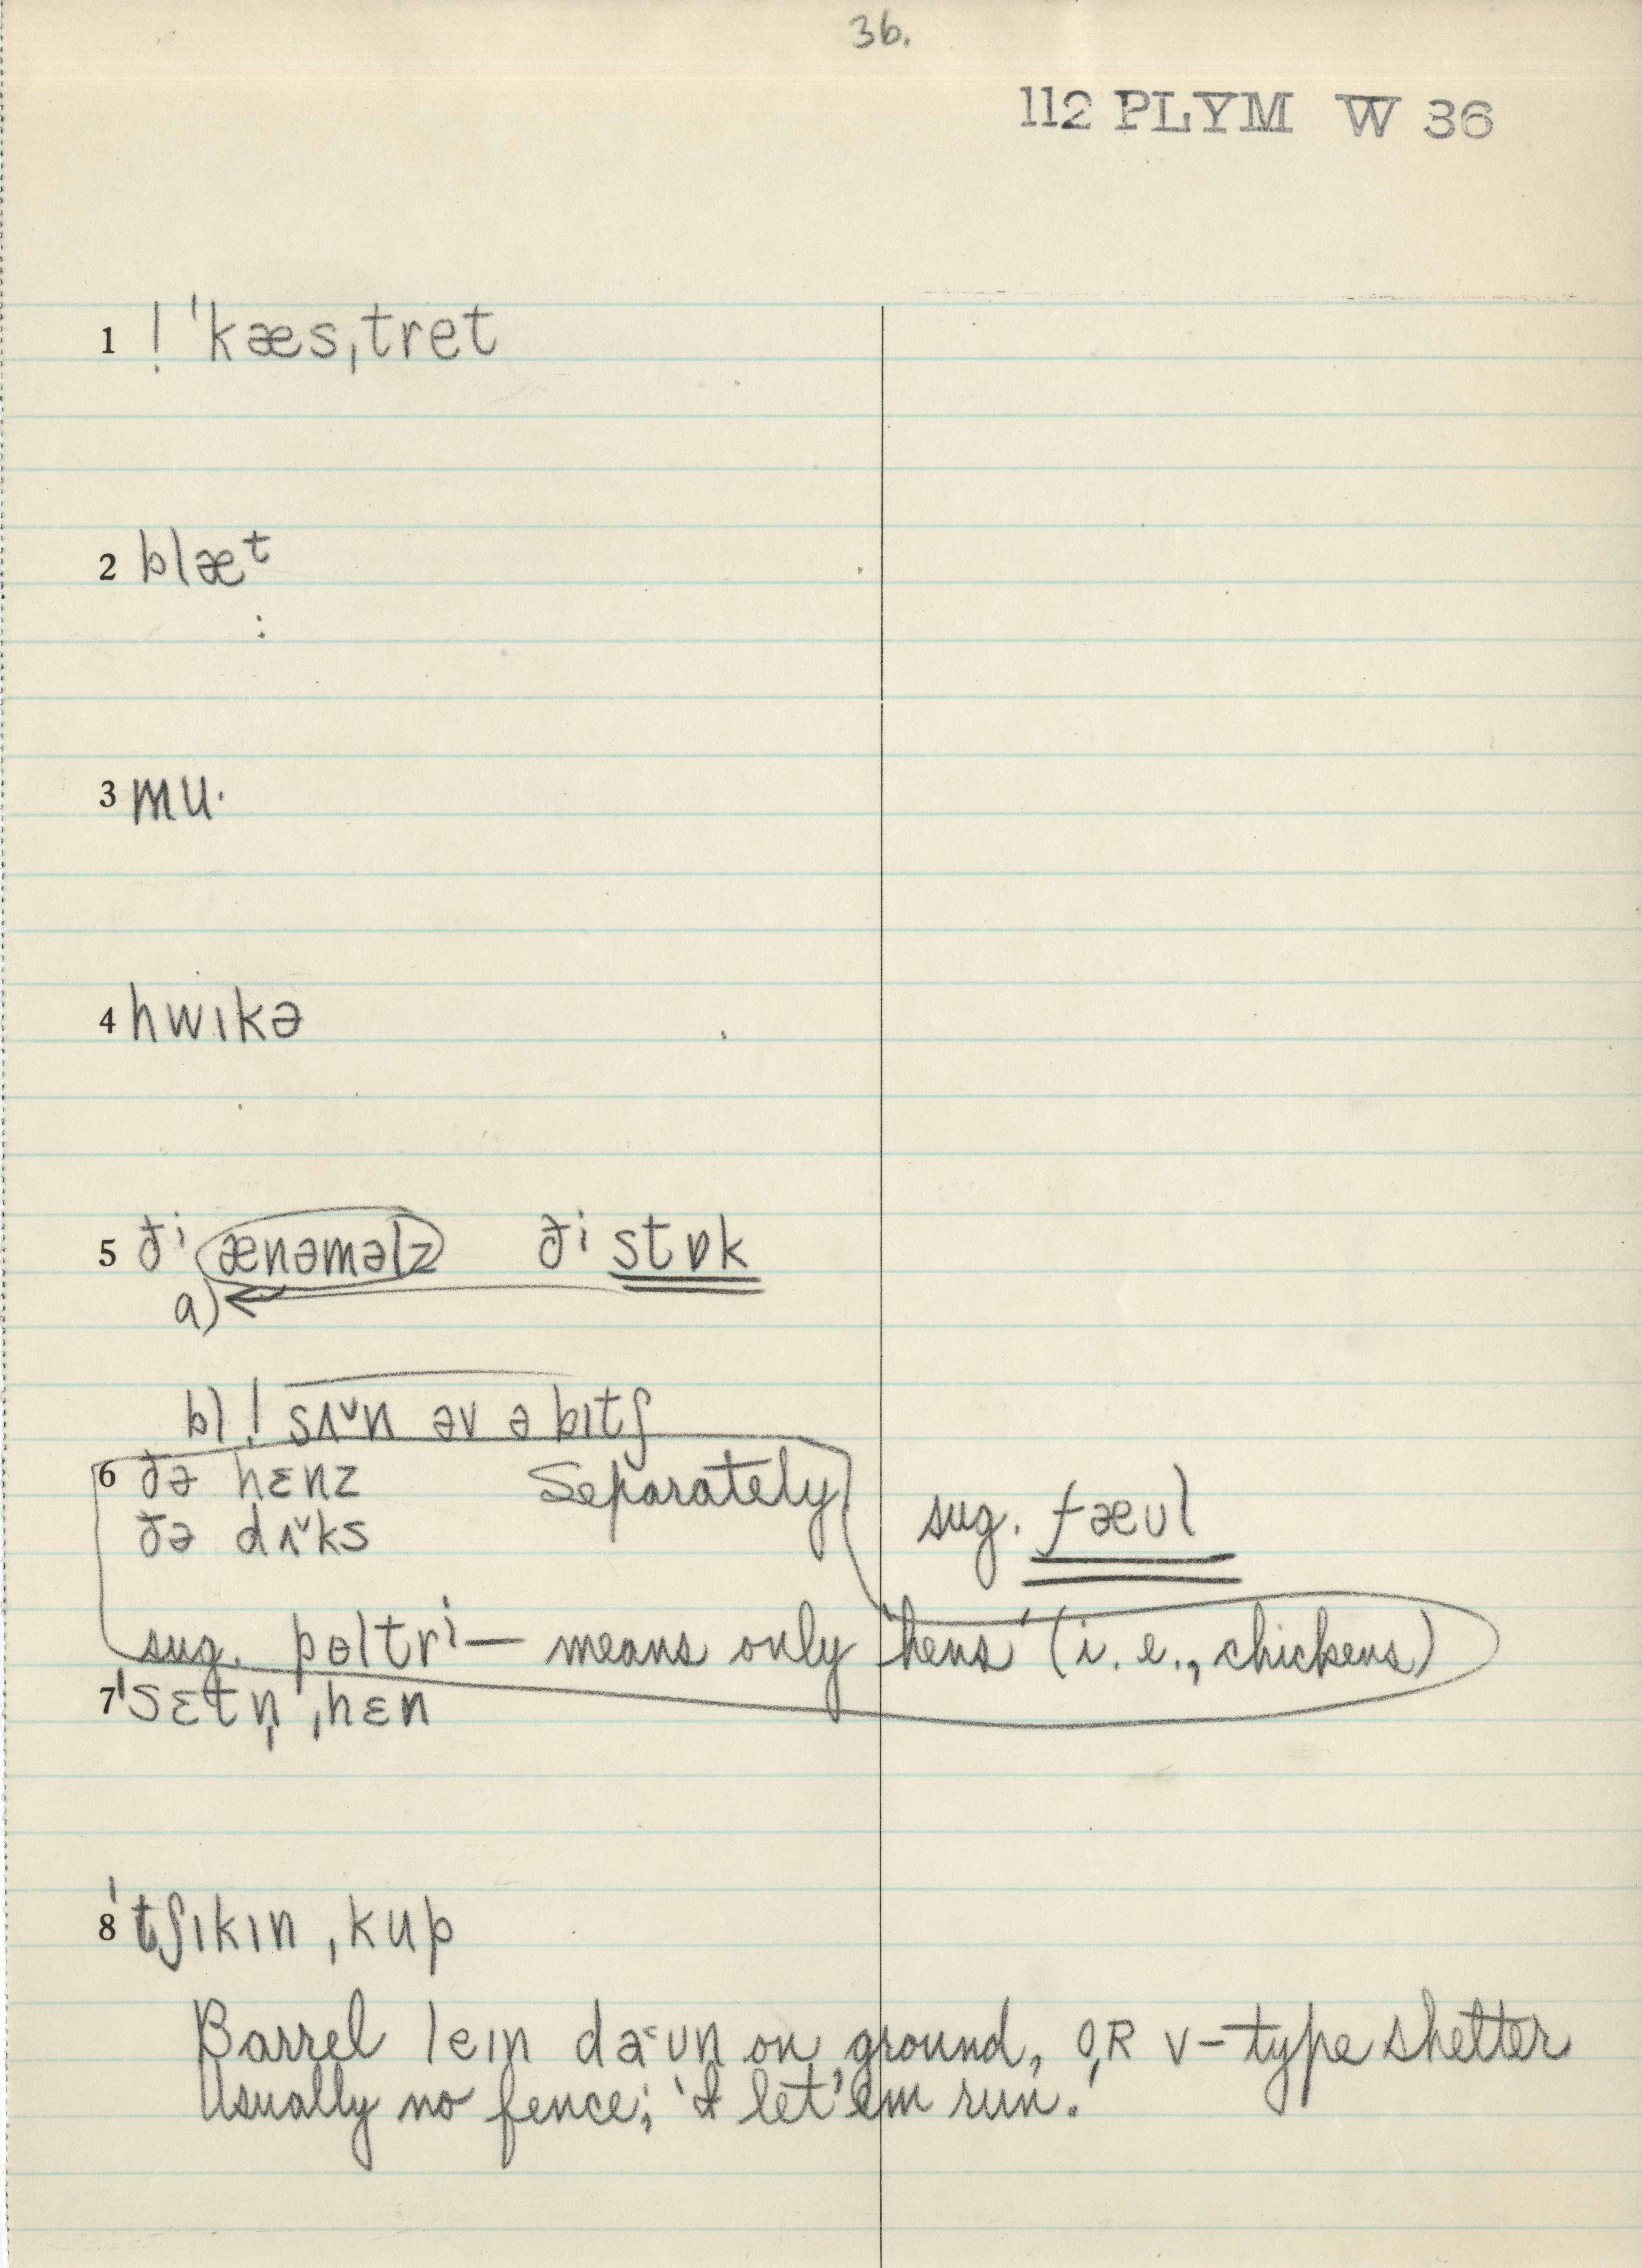 36.
112 PLYM W 36
1 ! ˈkæsˌtret
2 blæᵗ
:
3 mu·
4 hwɪkə
5 ðⁱ ænəməlz ðⁱ stɒk
a)
b) ! sʌ˅n əv ə bɪtʃ
6 ðə hɛnz Separately
ðə dʌ˅ks sug. fæʊl
sug. pəltrⁱ — means only 'hens' (i.e., chickens)
7 ˈsɛtn̩ ˌhɛn
8 ˈtʃɪkɪn ˌkup
Barrel leɪn da˂ʊn on ground, OR V-type shelter
Usually no fence; 'I let 'em run.'